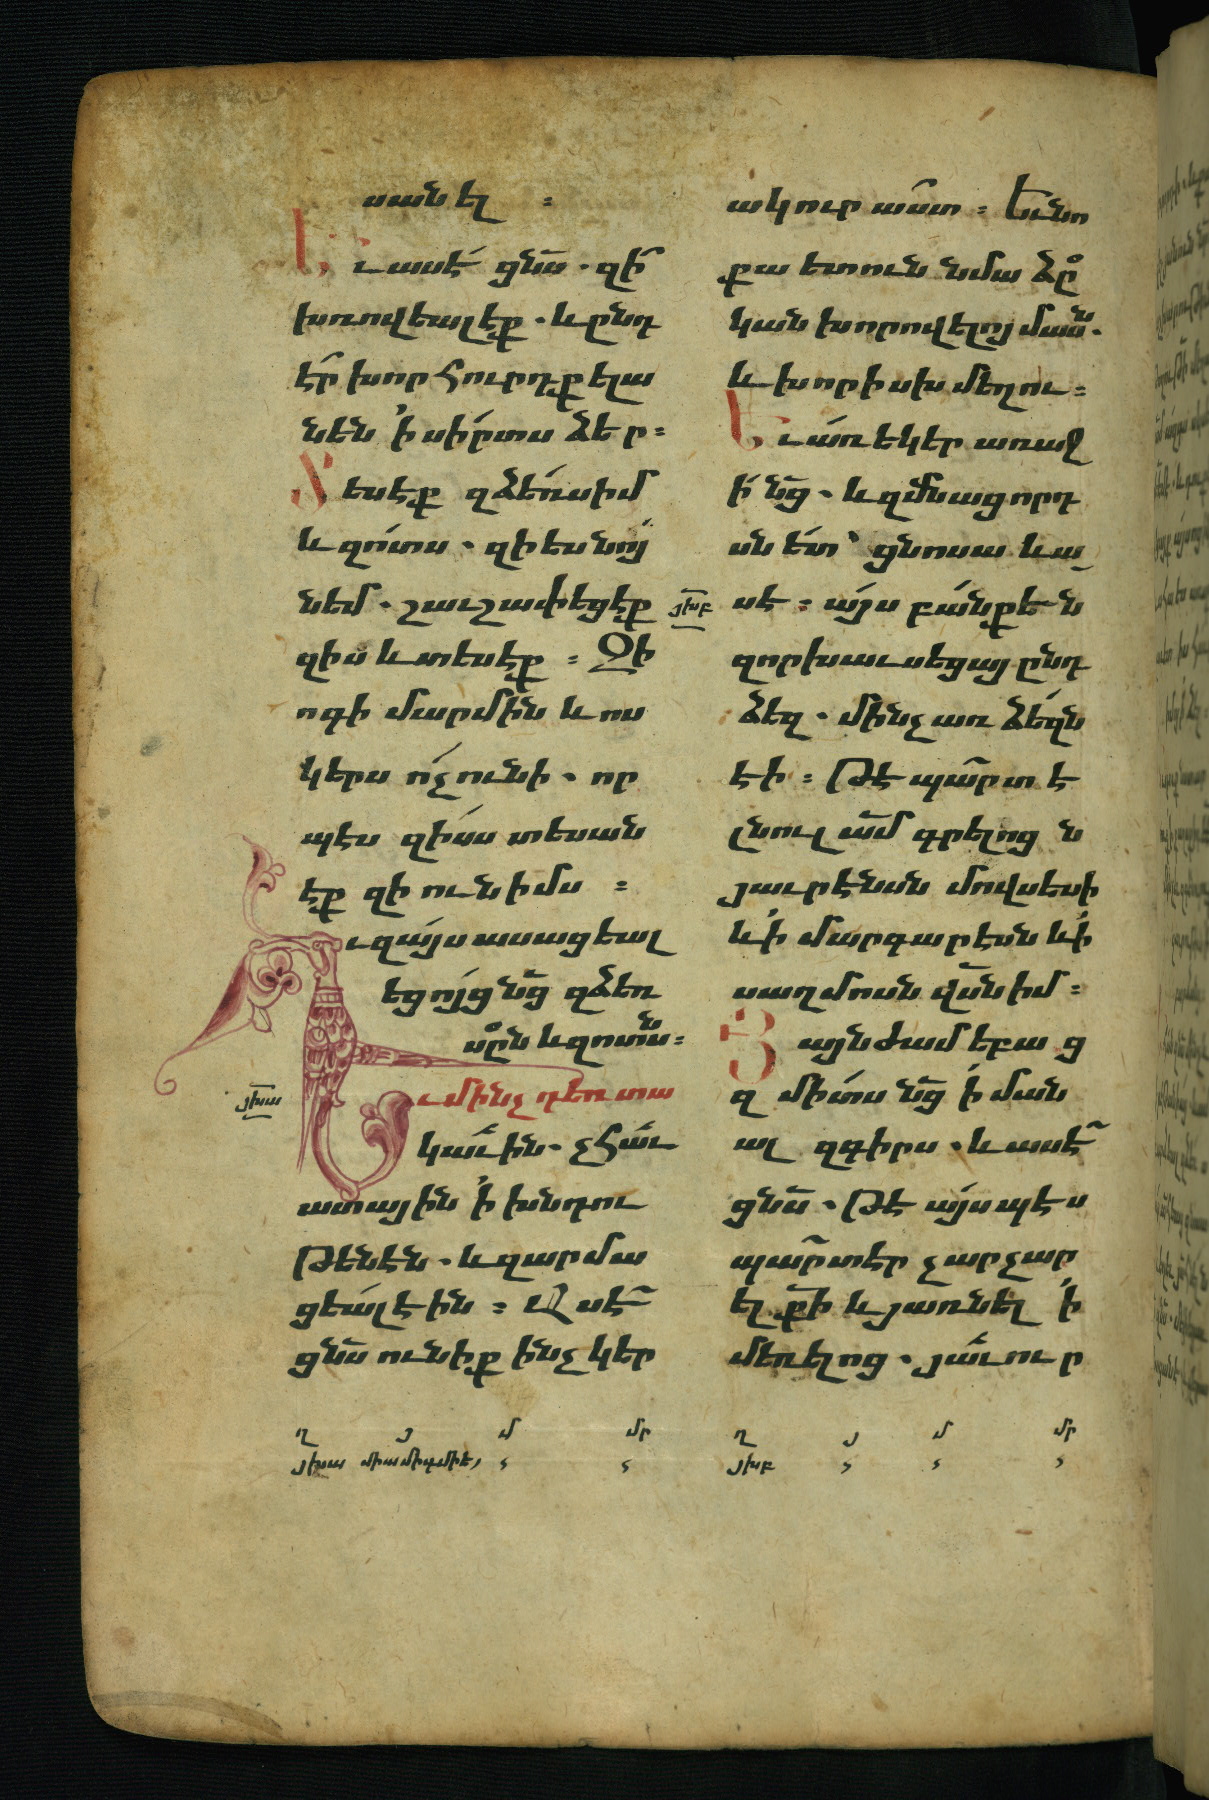 սանել ։
Եւ ասէ ցնս. զի՞
խռովեալ էք. և ընդ
է՞ր խորհուրդք ելա
նեն ՛ի սիրտս ձեր։
Տեսէք զձեռս իմ
և զոտս. զի ես նոյ
նեմ. շաւշափեցէք
զիս և տեսէք ։ Զի
ոգի մարմին և ոս
կերս ոչ ունի. որ
պէս զիսս տեսան
էք զի ունիմս ։
Եւ զայս ասացեալ
եցոյց նց զձեռ
սըն և զոտսն։
յխա
Եւ մինչ դեռ տա
կաւին. չհաւ
ատային ՛ի խնդու
թենէն. և զարմա
ցեալ էին ։ Ասէ
ցնս ունիք ինչ կեր
ակուր աստ ։ Եւ նո
քա ետուն նմա ձը
կան խորովելոյ մասն.
և խորիսխ մեղու ։
Եւ առ եկեր առաջ
ի նց. և զմնացորդ
սն ետ ցնոսա և ա
յխբ
սէ ։ այս բանք են
զոր խաւսեցայ ընդ
ձեզ. մինչ առ ձեզն
էի ։ Թէ պարտ է
լնուլ ամ գրելոց ն
յաւրէնսն մովսեսի
և ՛ի մարգարէսն և ՛ի
սաղմոսն վսն իմ ։
Յայնժամ եբաց
զ միտս նց ՛ի ման
ալ զգիրս. և ասէ
ցնս. Թէ այսպէս
պարտ էր չարչար
ել քի և յառնել ՛ի
մեռելոց. յաւուր
ղ յ մ մր
յխա միամիգմիէ
ղ յ մ մր
յխբ